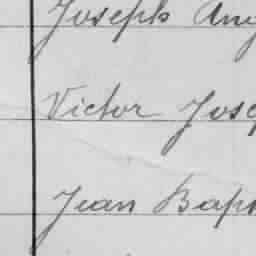 Joseph Aug
Victor Jose
Jean Bap